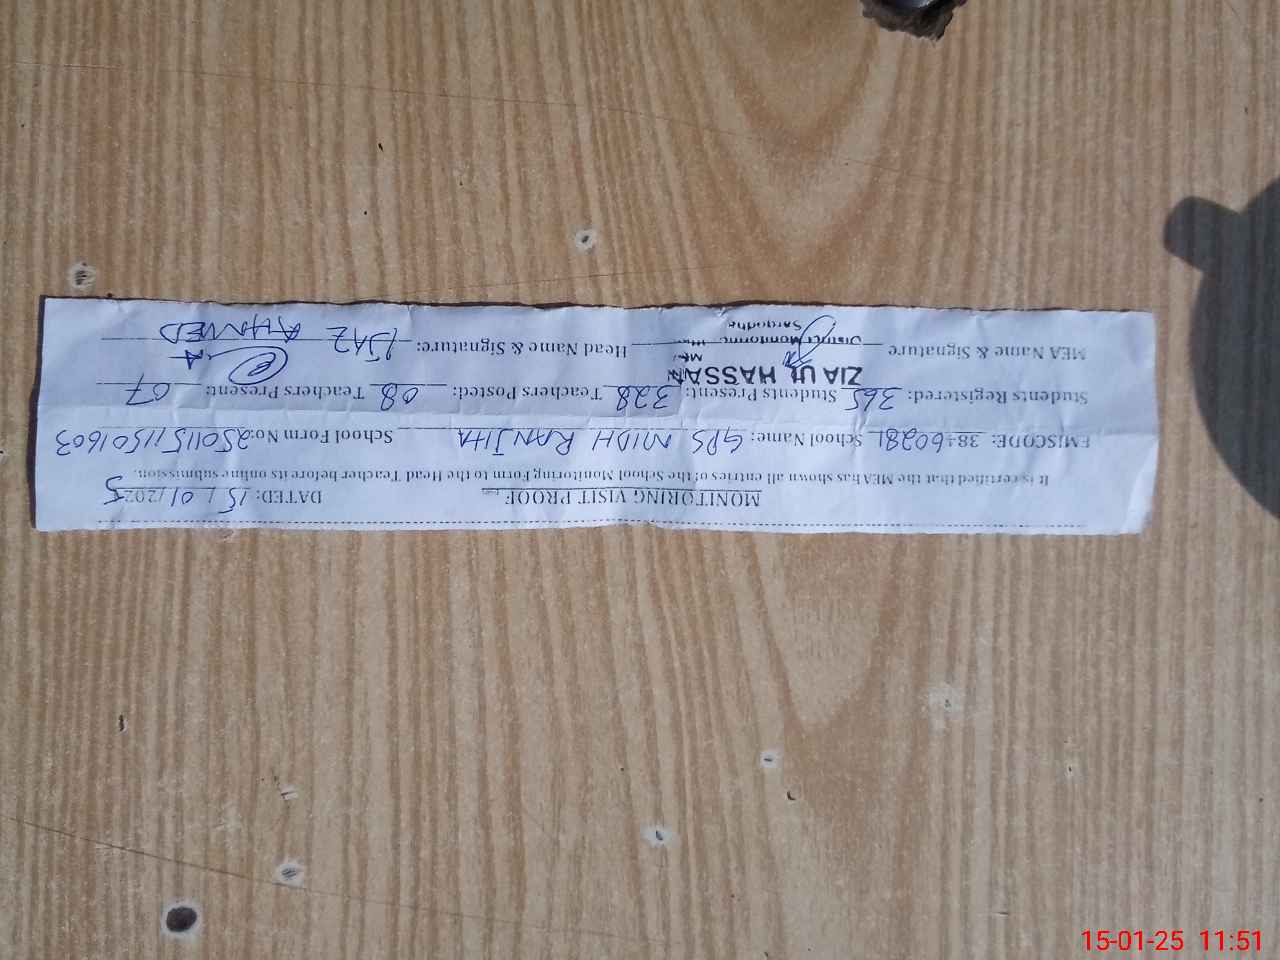 MONITORING VISIT PROOF DATED: 15/01/2025
It is certified that the MEA has shown all entries of the School Monitoring Form to the Head Teacher before its online submission.
EMISCODE: 38460281 School Name: GPS MIDH RANJHA School Form No: 25011511501603
Students Registered: 365 Students Present: 328 Teachers Posted: 08 Teachers Present: 07
MEA Name & Signature ZIA UL HASSAN Head Name & Signature: IJAZ AHAMED
District Monitoring
Sargodha
15-01-25 11:51